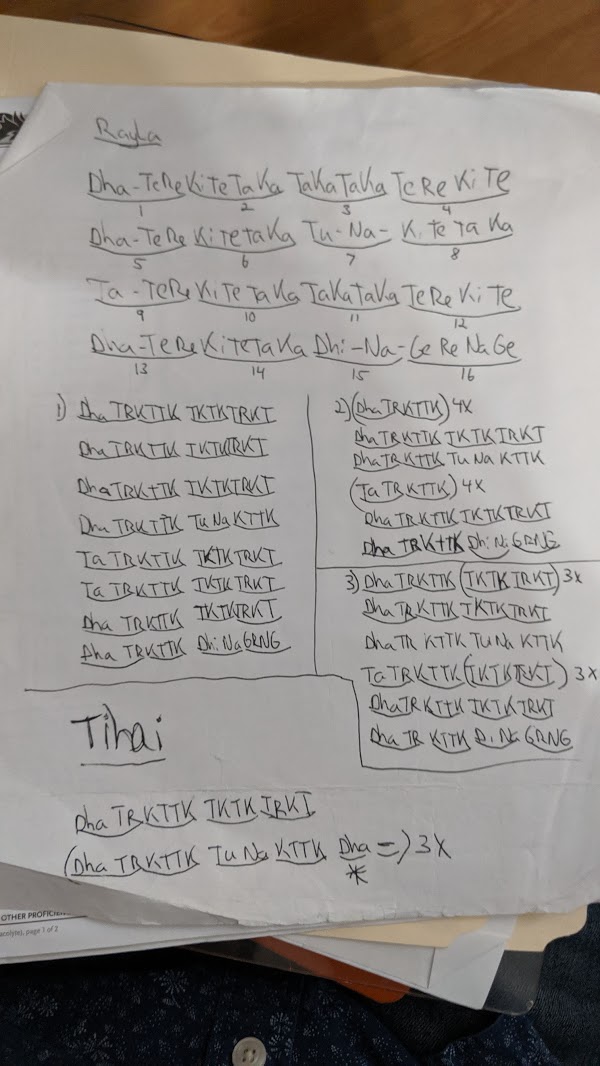 Rayla
Dha-TeReKiTeTaKa TaKaTaKa TeReKiTe
1 2 3 4
Dha-TeRe KiTeTaKa Tu-Na- KiTeTaKa
5 6 7 8
Ta-TeRe KiTeTaKa TaKaTaKa TeReKiTe
9 10 11 12
Dha-TeReKiTeTaKa Dhi-Na-GeReNaGe
13 14 15 16
1) Dha TRKTTK TKTKTRKT
Dha TRKTTK TKTKTRKT
Dha TRKTTK TKTKTRKT
Dha TRKTTK TuNaKTTK
Ta TRKTTK TKTKTRKT
Ta TRKTTK TKTKTRKT
Dha TRKTTK TKTKTRKT
Dha TRKTTK DhiNaGRNG
2) (Dha TRKTTK) 4x
Dha TRKTTK TKTKTRKT
Dha TRKTTK TuNa KTTK
(Ta TRKTTK) 4x
Dha TRKTTK TKTKTRKT
Dha TRKTTK DhiNaGRNG
3) Dha TRKTTK (TKTKTRKT) 3x
Dha TRKTTK TKTKTRKT
Dha TR KTTK TuNa KTTK
Ta TRKTTK (TKTKTRKT) 3x
Dha TRKTTK TKTKTRKT
Dha TR KTTK Di Na GRNG
Tihai
Dha TRKTTK TKTK TRKT
(Dha TRKTTK TuNa KTTK Dha =) 3x
*
OTHER PROFICIEN
acolyte), page 1 of 2